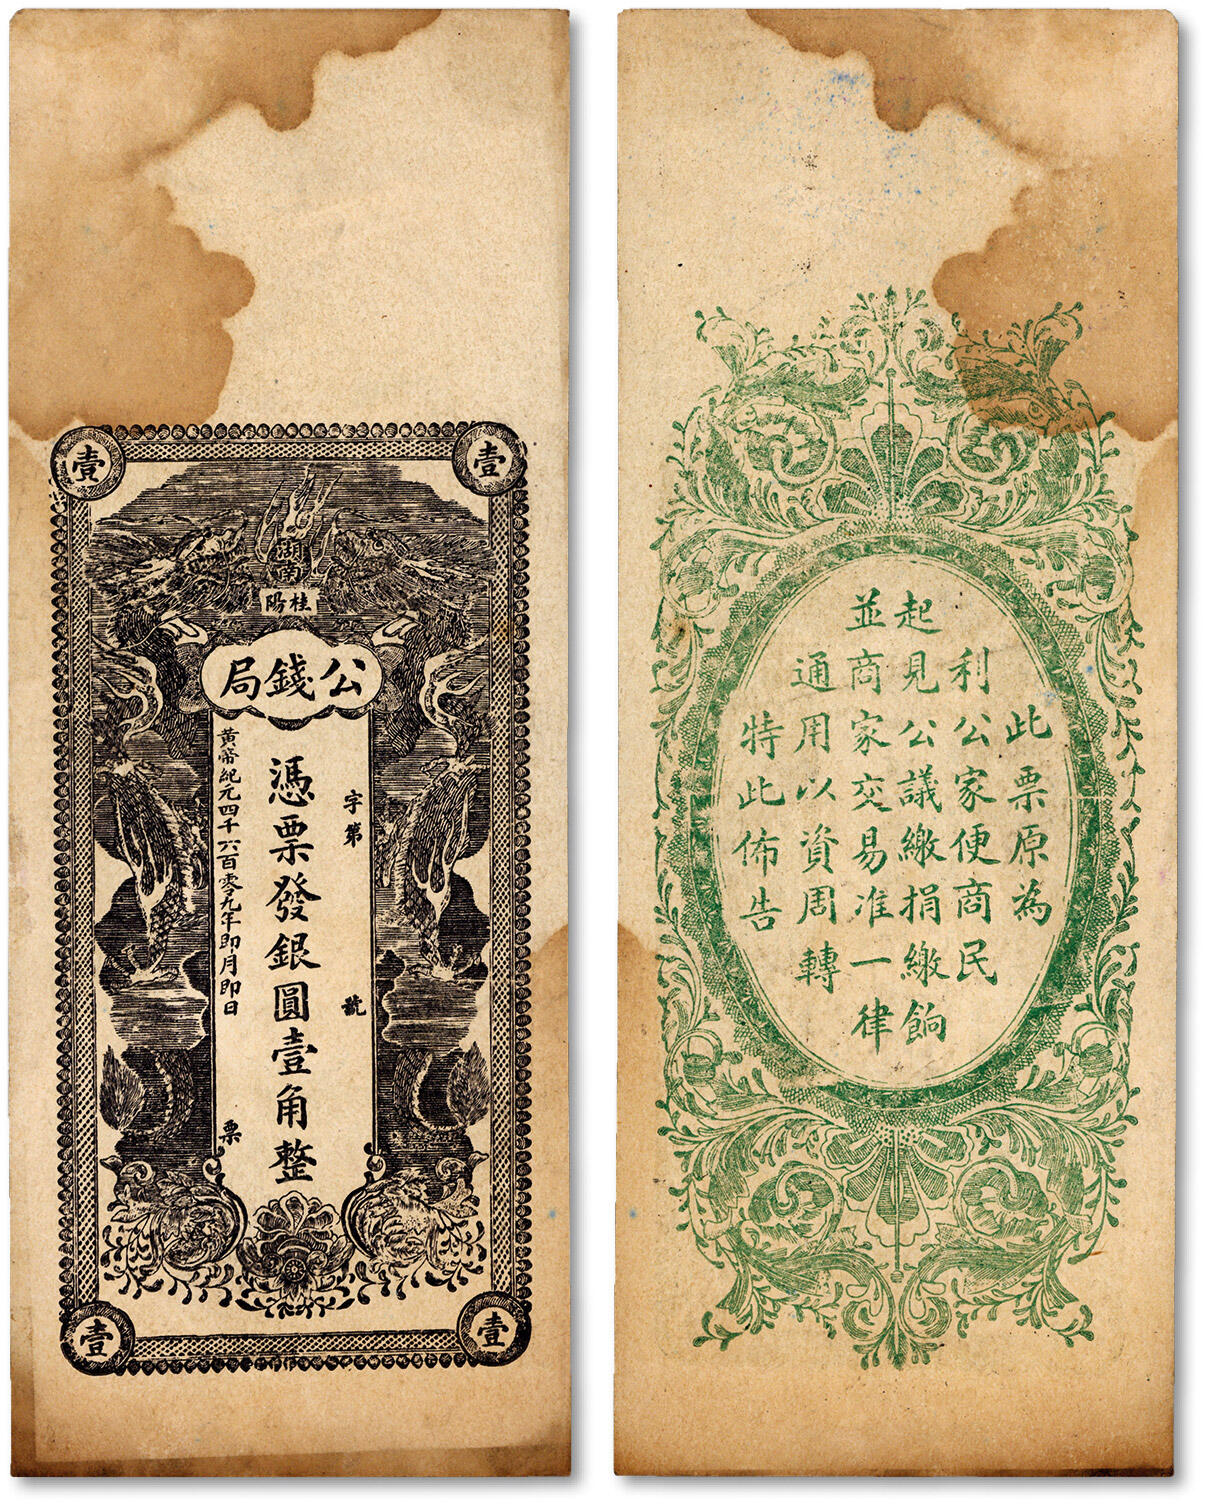 壹
壹
湖南
桂陽
公錢局
字第 號
憑票發銀圓壹角整
黃帝紀元四千六百零九年即月即日
票
壹
壹
此票原為
利公家便商民
起見公議繳捐繳餉
並商家交易准一律
通用以資周轉
特此佈告